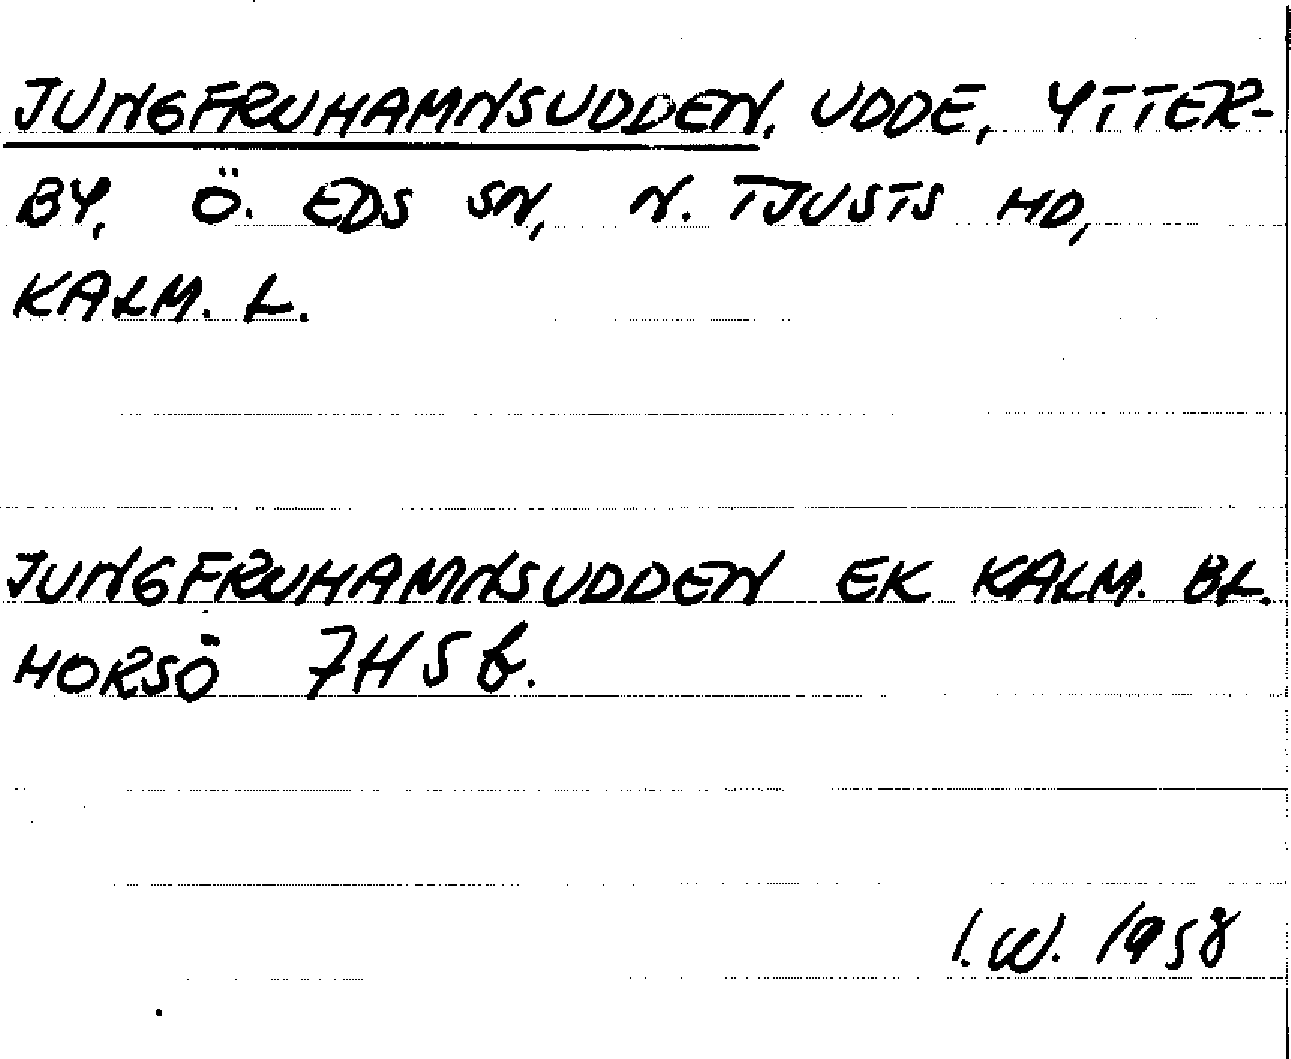 JUNGFRUHAMNSUDDEN, UDDE, YTTER-
BY, Ö. EDS SN, N. TJUSTS HD,
KALM. L.
JUNGFRUHAMNSUDDEN EK KALM. BL.
HORSÖ 7H5b.
I.W. 1958